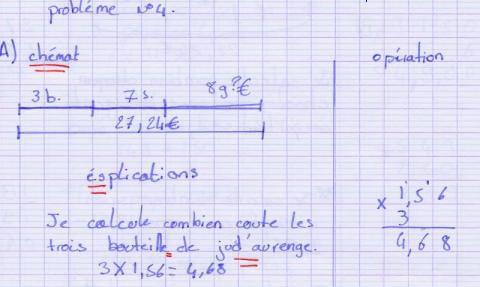 problème N°4.
A) chémat
opération
3 b. 7 s. 8 g ? €
27,24€
ésplications
Je calcule combien coute les
trois bouteille de jud'aurenge.
3 X 1,56 = 4,68
1,56
x 3
4,68